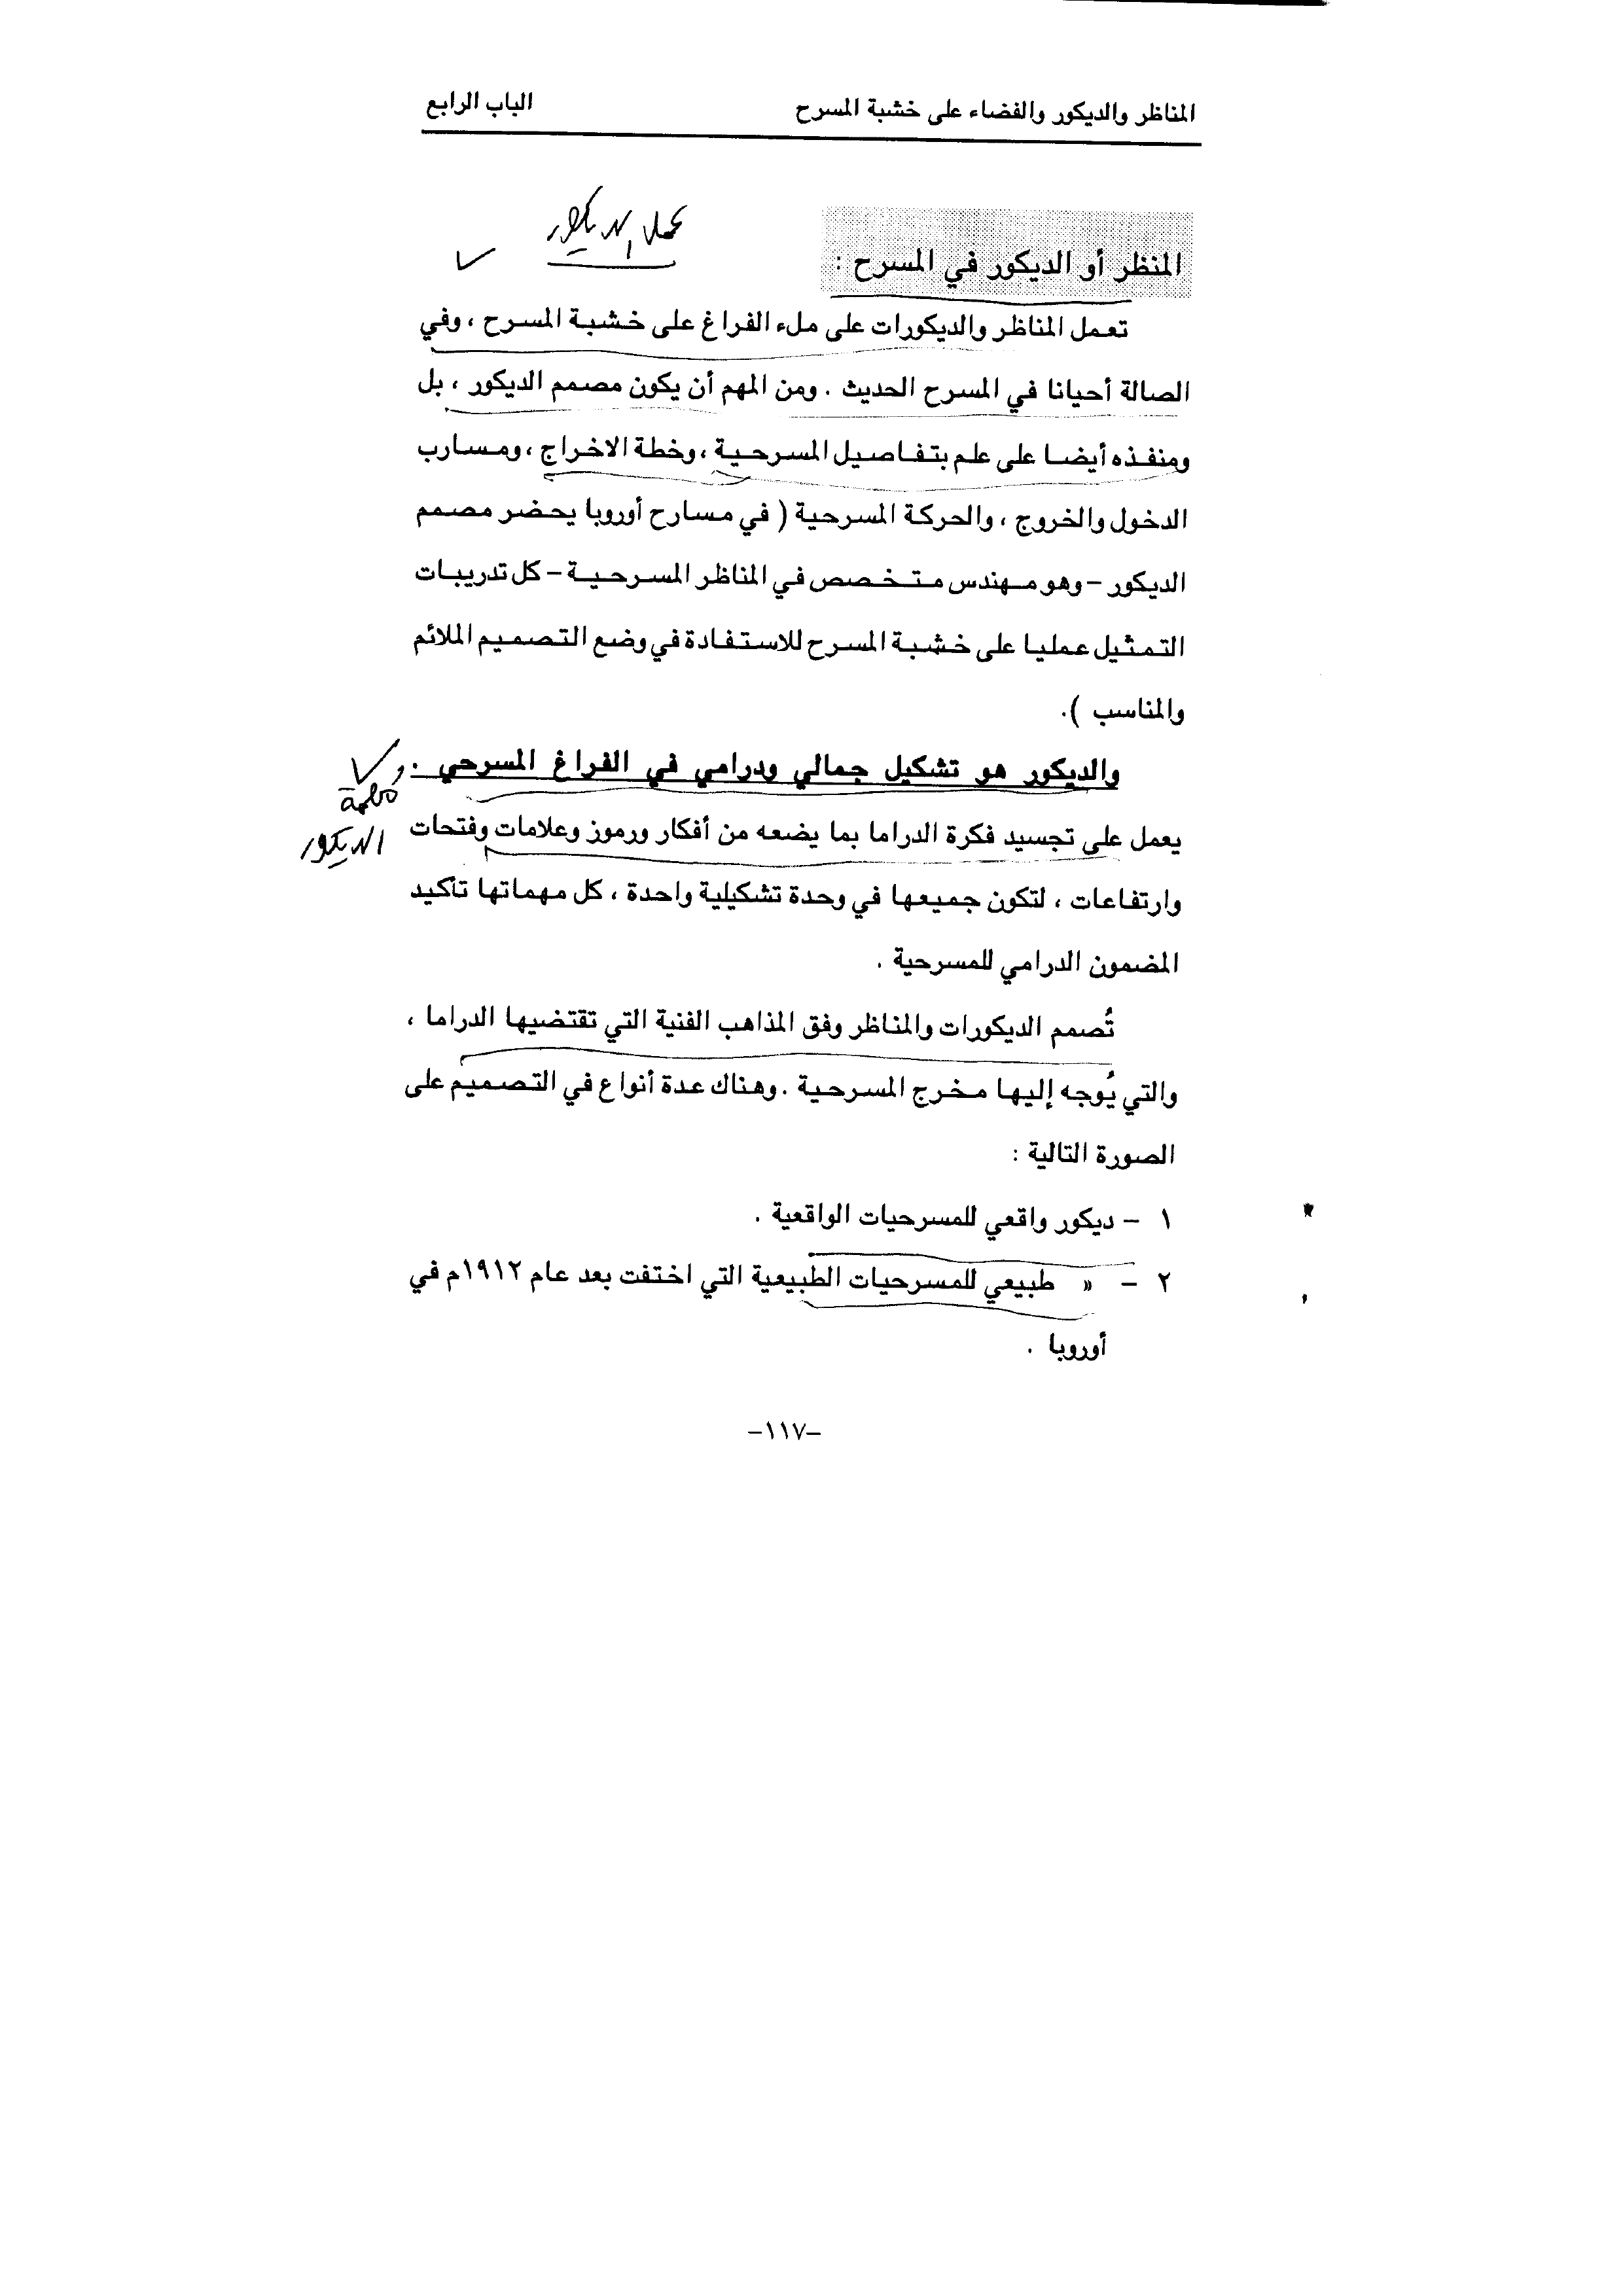 المناظر والديكور والفضاء على خشبة المسرح الباب الرابع
عمل الديكور
المنظر أو الديكور في المسرح :
تعمل المناظر والديكورات على ملء الفراغ على خشبة المسرح ، وفي
الصالة أحيانا في المسرح الحديث . ومن المهم أن يكون مصمم الديكور ، بل
ومنفذه أيضا على علم بتفاصيل المسرحية ، وخطة الاخراج ، ومسارب
الدخول والخروج ، والحركة المسرحية ( في مسارح أوروبا يحضر مصمم
الديكور – وهو مهندس متخصص في المناظر المسرحية – كل تدريبات
التمثيل عمليا على خشبة المسرح للاستفادة في وضع التصميم الملائم
والمناسب ).
والديكور هو تشكيل جمالي ودرامي في الفراغ المسرحي .
الديكور
يعمل على تجسيد فكرة الدراما بما يضعه من أفكار ورموز وعلامات وفتحات
وارتفاعات ، لتكون جميعها في وحدة تشكيلية واحدة ، كل مهماتها تأكيد
المضمون الدرامي للمسرحية .
تُصمم الديكورات والمناظر وفق المذاهب الفنية التي تقتضيها الدراما ،
والتي يُوجه إليها مخرج المسرحية . وهناك عدة أنواع في التصميم على
الصورة التالية :
١ – ديكور واقعي للمسرحيات الواقعية .
٢ – » طبيعي للمسرحيات الطبيعية التي اختفت بعد عام ١٩١٢م في
أوروبا .
–١١٧–